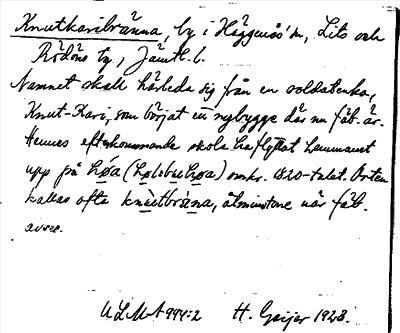 Knutkaribränna, by i Häggenås sn, Lits och
Rödöns tg, Jämtl. l.
Namnet skall härleda sig från en soldatenka,
Knut-Kari, som börjat en nybygge där nu fäb. är.
Hennes efterkommande skola ha flyttat
upp på høa ( ) omkr. 1820-talet. Orten
kallas ofta knùtbräna, åtminstone när fäb.
avses.
ULMA 994:2 H. Geijer 1928.